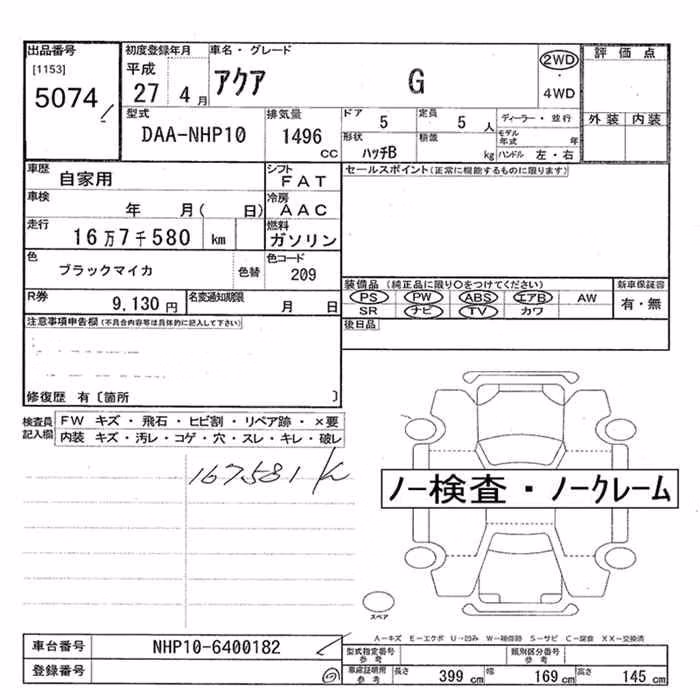 出品番号
[1153]
5074
初度登録年月
平成
27 4月
車名・グレード
アクア G
2WD
・
4WD
評価点
外装 内装
型式
DAA-NHP10
排気量
1496
CC
ドア
5
定員
5 人
形状
ハッチB
積載
kg
ディーラー・並行
モデル年式 年
ハンドル 左・右
車歴
自家用
シフト
FAT
車検
年 月( 日)
冷房
AAC
走行
16万7千580 km
燃料
ガソリン
色
ブラックマイカ
色替
色コード
209
R券
9,130円
名変通知期限
月 日
セールスポイント(正常に機能するものに限ります)
装備品(純正品に限り○をつけてください)
PS PW ABS エアB AW
SR ナビ TV カワ
新車保証書
有・無
後日品
注意事項申告欄(不具合内容等は具体的に記入して下さい)
修復歴 有〔箇所 〕
検査員記入欄
FW キズ・飛石・ヒビ割・リペア跡・×要
内装 キズ・汚レ・コゲ・穴・スレ・キレ・破レ
167581 K
ノー検査・ノークレーム
スペア
A−キズ E−エクボ U−凹み W−補修跡 S−サビ C−腐食 XX−交換済
車台番号
NHP10-6400182
登録番号
型式指定番号
参考
類別区分番号
参考
車庫証明用
参考
長さ 399 cm 幅 169 cm 高さ 145 cm